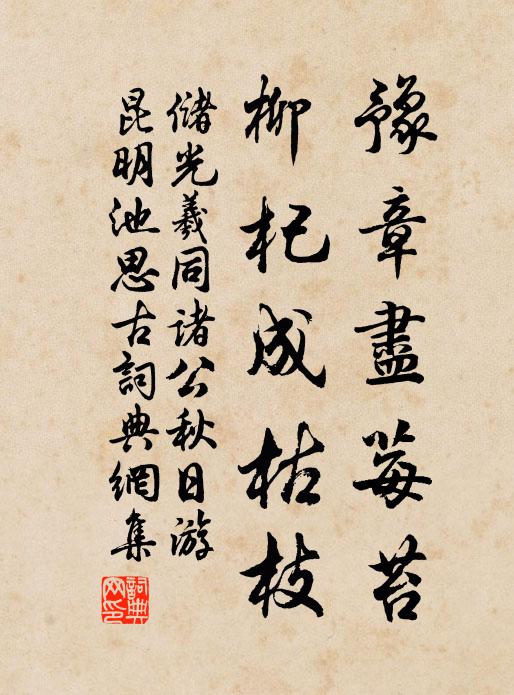 豫章盡莓苔
柳杞成枯枝
儲光羲同諸公秋日游
昆明池思古詞典網集
詞典网印